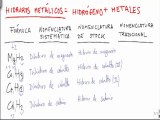 HIDRUROS METÁLICOS = HIDRÓGENO + METALES
FÓRMULA NOMENCLATURA SISTEMÁTICA NOMENCLATURA DE STOCK NOMENCLATURA TRADICIONAL
MgH₂ Dihidruro de magnesio Hidruro de magnesio
Dihidruro de cobalto Hidruro de cobalto (II)
Trihidruro de cobalto Hidruro de cobalto (III)
Dihidruro de Hidruro de